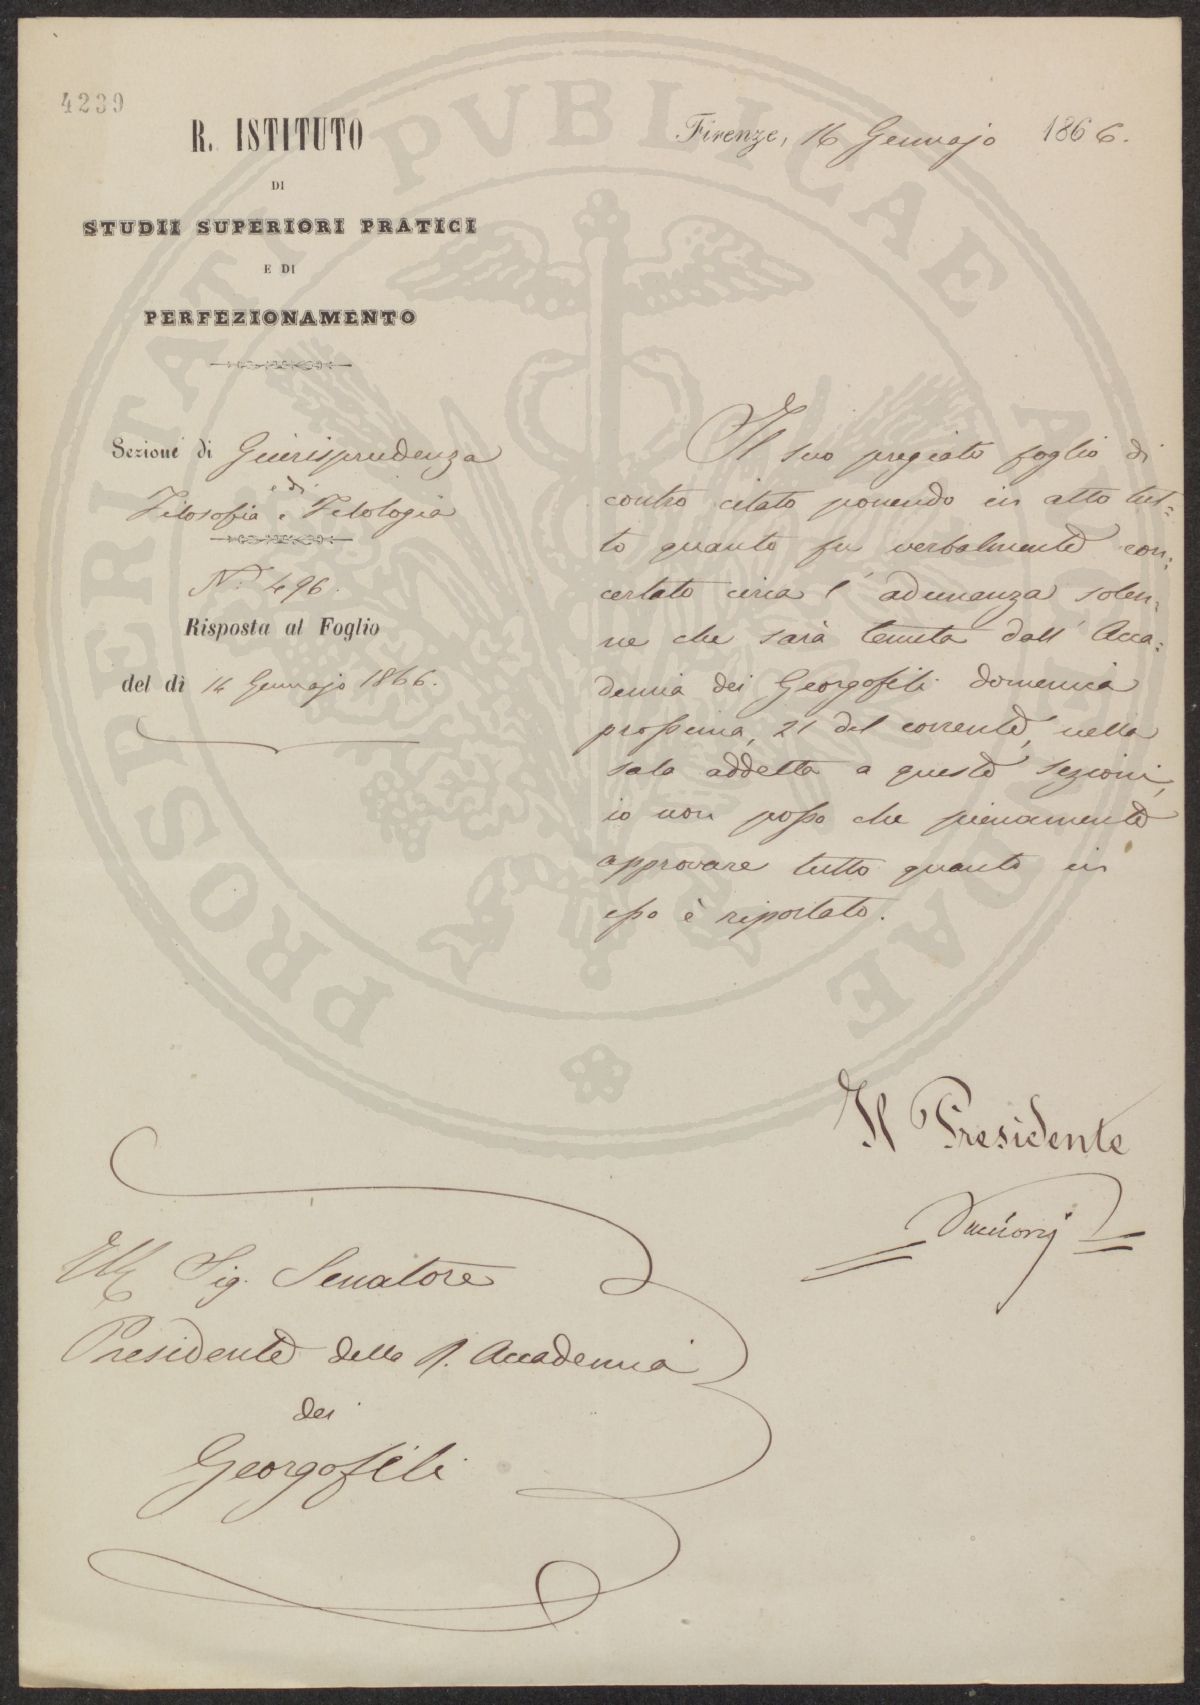 4239
R. ISTITUTO
DI
STUDII SUPERIORI PRATICI
E DI
PERFEZIONAMENTO
Sezione di Giurisprudenza
e di
Filosofia e Filologia
N.º 496.
Risposta al Foglio
del dì 14 Gennajo 1866.
Firenze, 16 Gennajo 1866.
Il suo pregiato foglio di
contro citato ponendo in atto tut=
to quanto fu verbalmente con=
certato circa l'adunanza solen=
ne che sarà tenuta dall'Acca=
demia dei Georgofili domenica
prossima, 21 del corrente, nella
sala addetta a queste sezioni,
io non posso che pienamente
approvare tutto quanto in
esso è riportato.
Il Presidente
Ill. Sig. Senatore
Presidente della R. Accademia
dei
Georgofili
PROSPERITATI PVBLICAE AVGENDAE